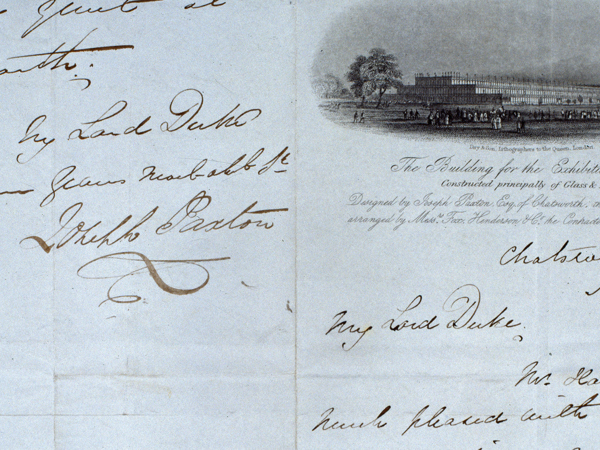 My Lord Duke
yours most obdt St
Joseph Paxton
Day & Son, Lithographers to the Queen, London
The Building for the Exhibiti
Constructed principally of Glass &
Designed by Joseph Paxton Esq. of Chatsworth; th
arranged by Messrs Fox, Henderson, & Co. the Contract
Chatsw
My Lord Duke.
Mr. Ha
much pleased with